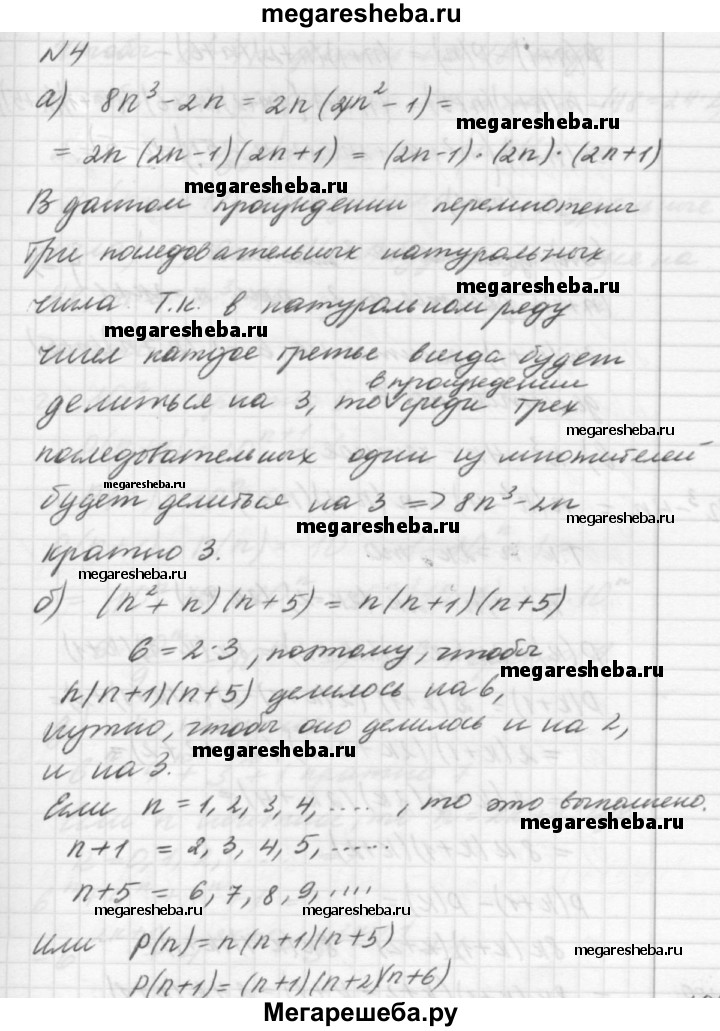 megaresheba.ru
N4
а) 8n³ - 2n = 2n(4n² - 1) =
megaresheba.ru
= 2n(2n-1)(2n+1) = (2n-1)·(2n)·(2n+1)
megaresheba.ru
В данном произведении перемножены
три последовательных натуральных
megaresheba.ru
числа. Т.к. в натуральном ряду
megaresheba.ru
чисел каждое третье всегда будет
в произведении
делиться на 3, то среди трех
megaresheba.ru
последовательных один из множителей
megaresheba.ru
будет делиться на 3 => 8n³-2n
megaresheba.ru
кратно 3.
megaresheba.ru
б) (n²+n)(n+5) = n(n+1)(n+5)
6 = 2·3, поэтому, чтобы
megaresheba.ru
n(n+1)(n+5) делилось на 6,
нужно, чтобы оно делилось и на 2,
megaresheba.ru
и на 3.
Если n = 1, 2, 3, 4, ....., то это выполнено.
megaresheba.ru
n+1 = 2, 3, 4, 5, ......
n+5 = 6, 7, 8, 9, ....
megaresheba.ru megaresheba.ru
Или P(n) = n(n+1)(n+5)
megaresheba.ru
P(n+1) = (n+1)(n+2)(n+6)
Мегарешеба.ру